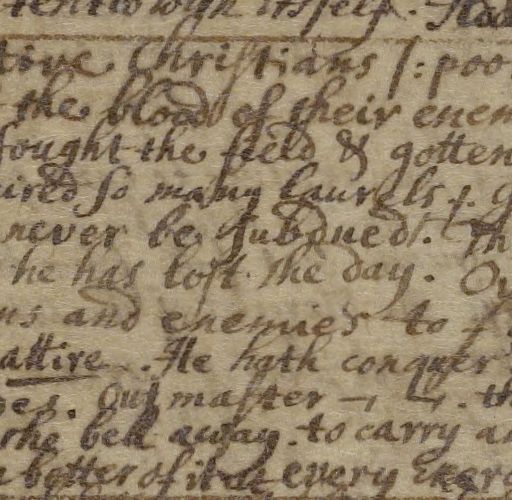 itself.
tive Christians /: poor
the blood of their enem
fought the field & gotten
ired so many laurels
never be subdued. Th
he has lost the day.
ns and enemies to
attire. He hath conquer
Our master
the bell away. to carry
better of it at every